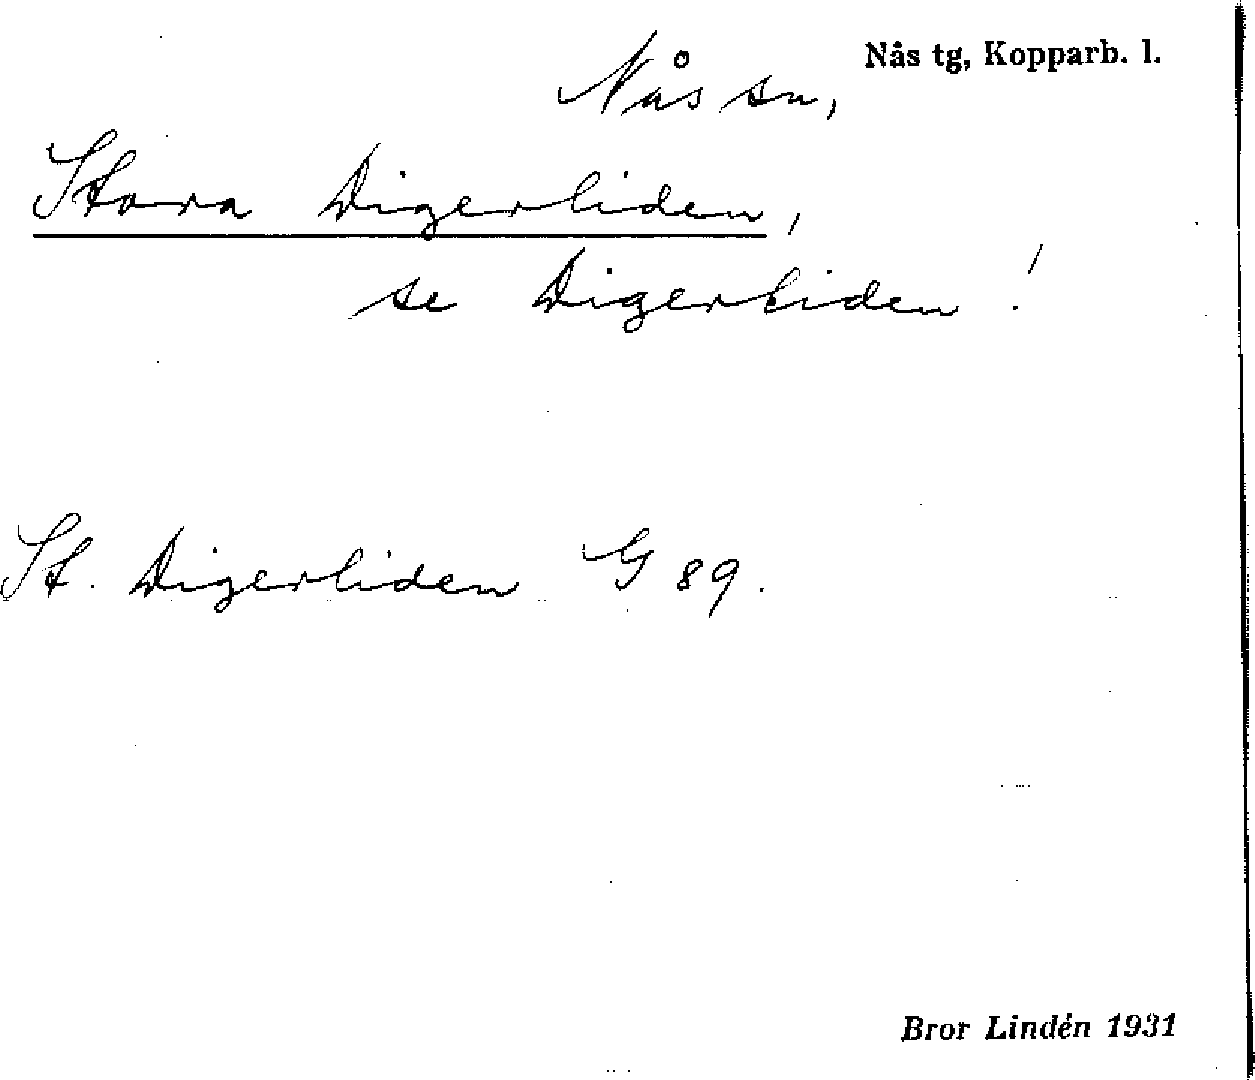 Nås sn,
Nås tg, Kopparb. l.
Stora Digerliden,
se Digerliden!
St. Digerliden G 89.
Bror Lindén 1931